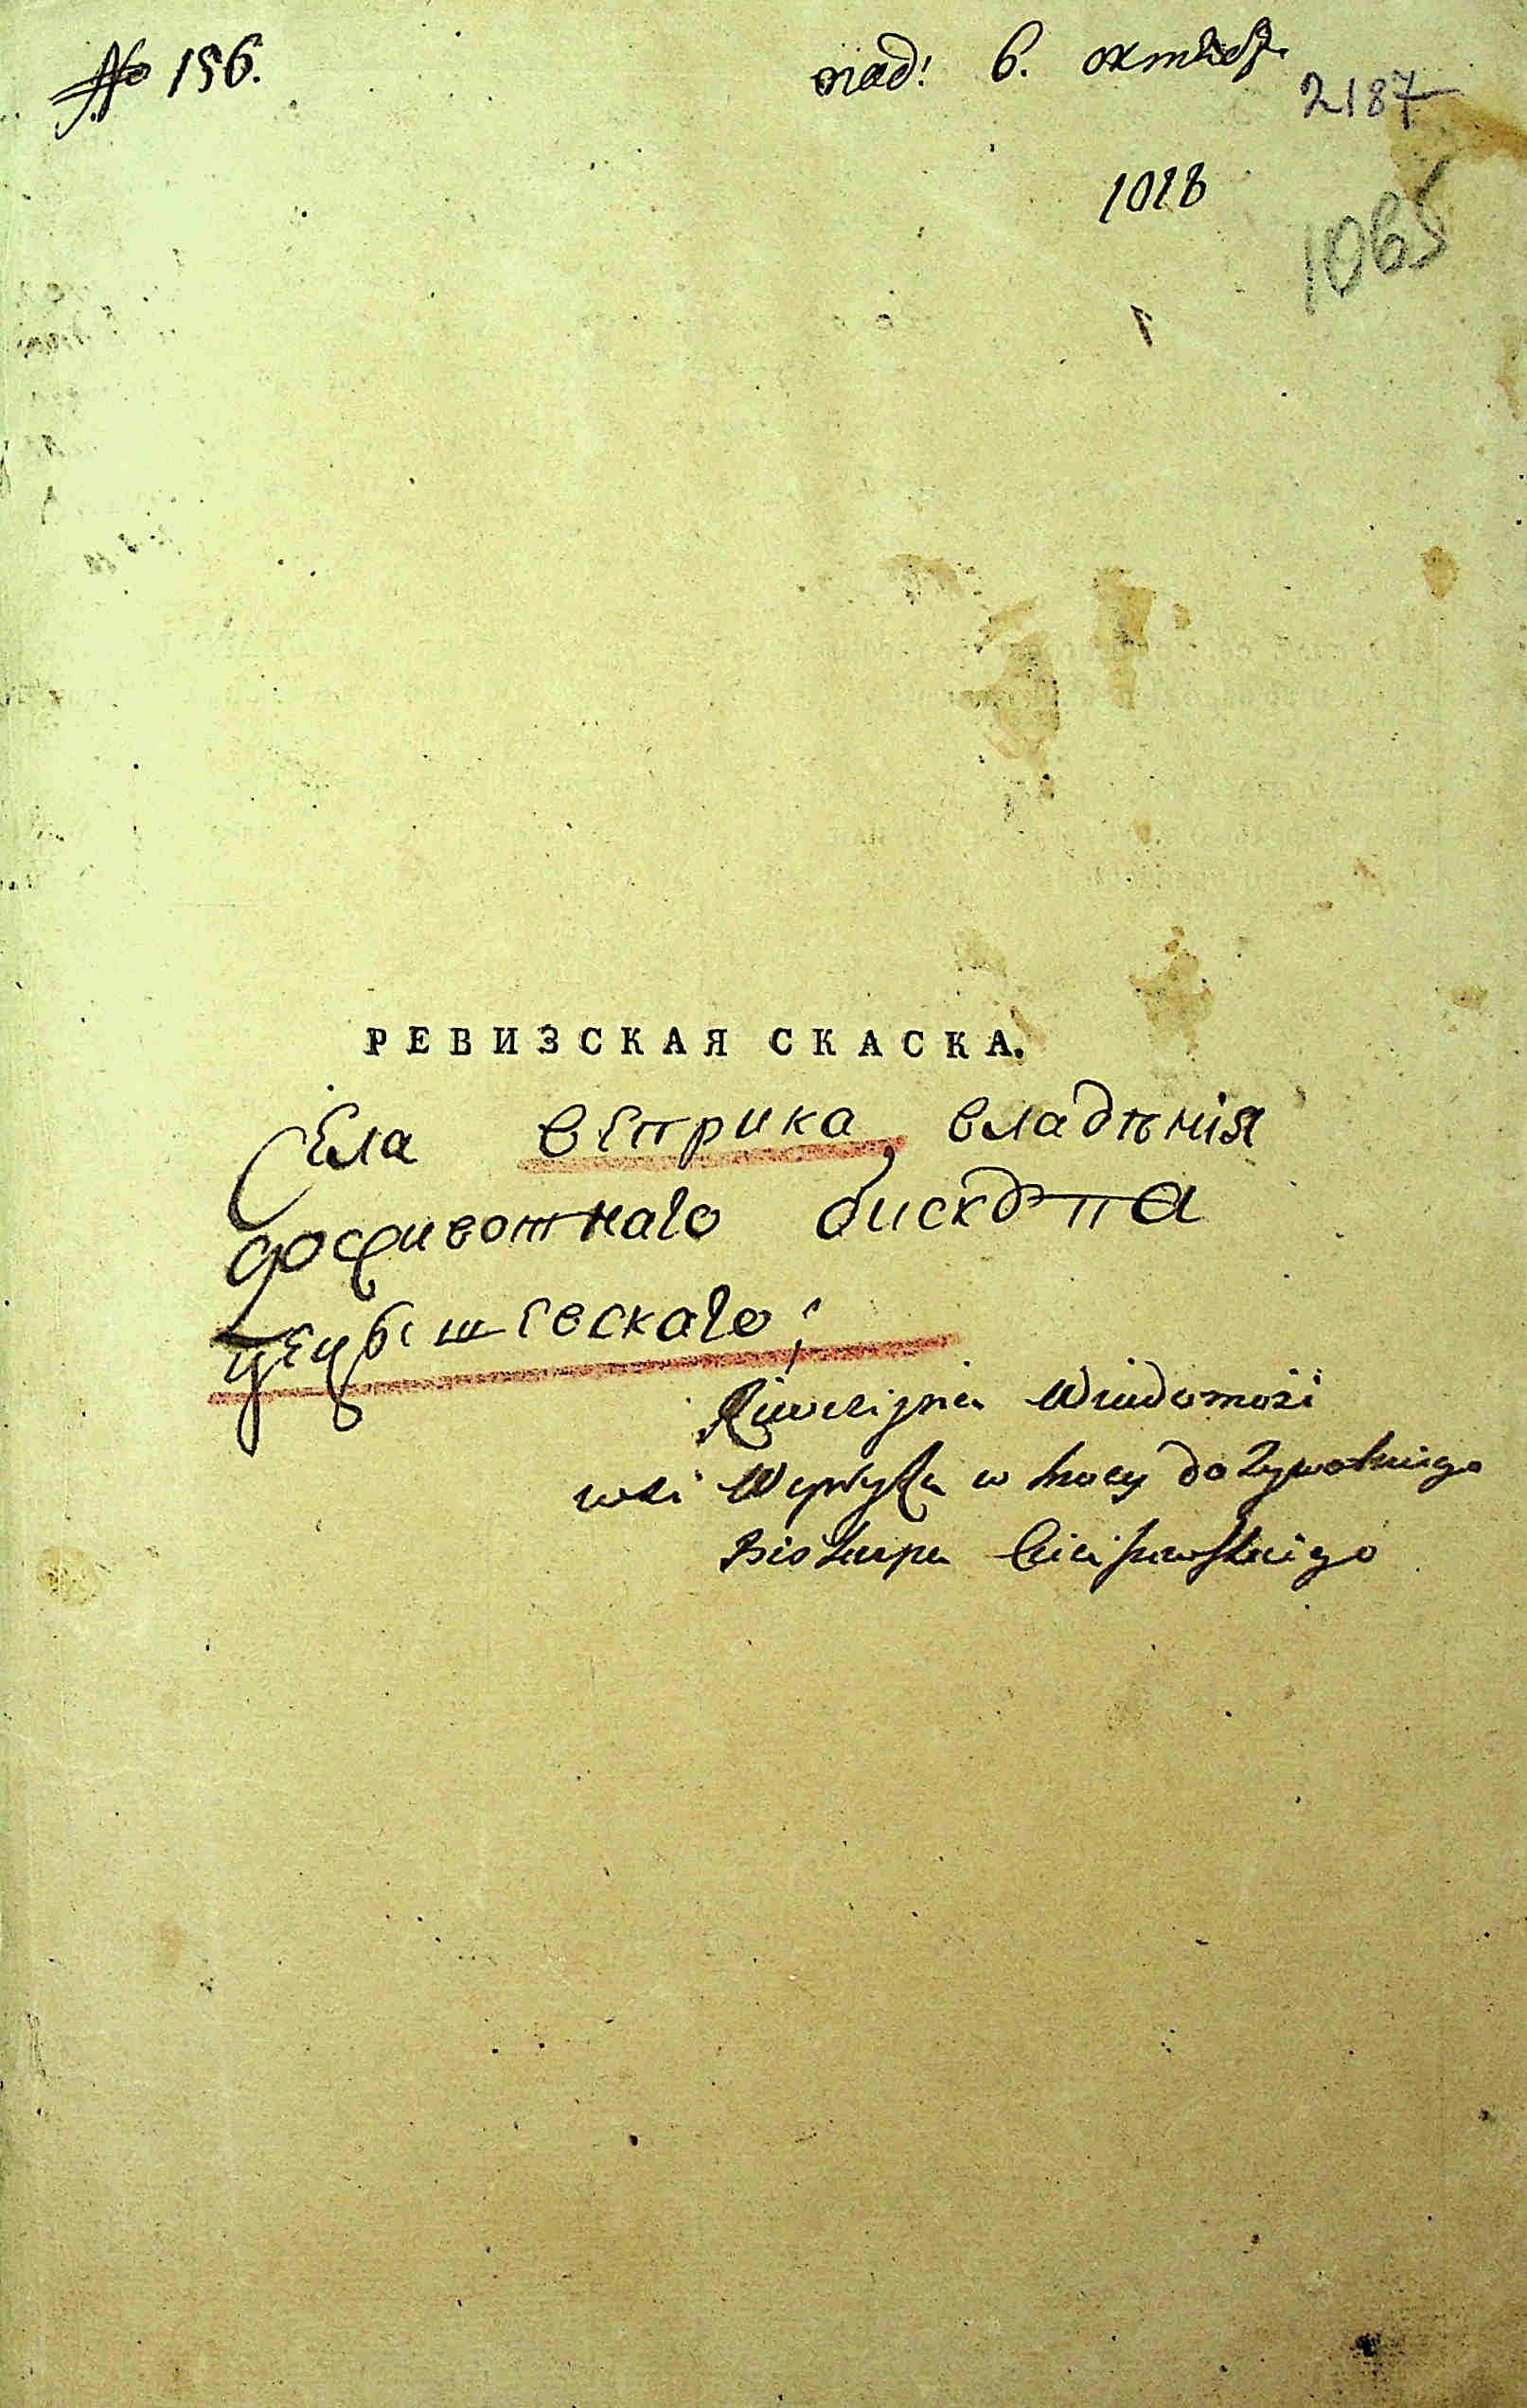 № 156.
под: 6. октября
2187
1018
1065
РЕВИЗСКАЯ СКАСКА.
Села веприка, владѣнія
доживотнаго бискупа
цецышевскаго;
Rewizyina Wiadomość
wsi Wepryka w mocy dożywotniego
Biskupa Cieciszewskiego